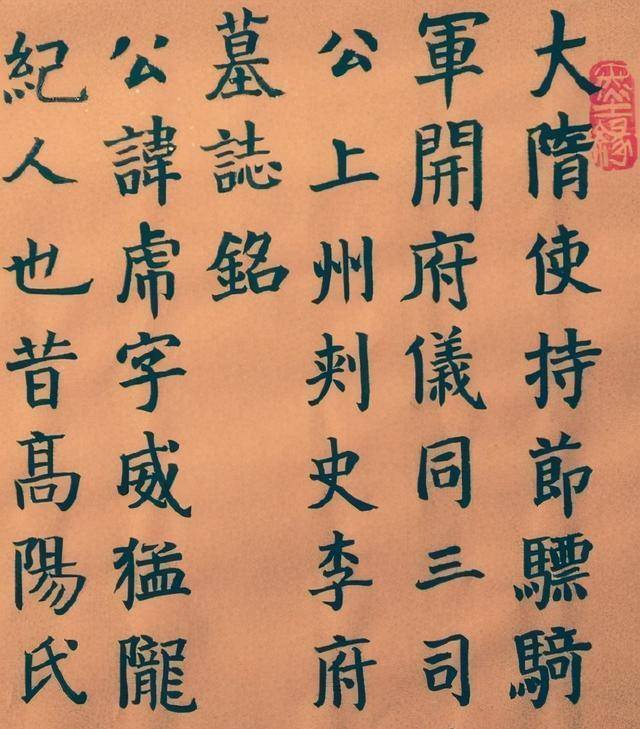 大隋使持節驃騎
軍開府儀同三司
公上州刾史李府
墓誌銘
公諱虎字威猛隴
紀人也昔髙陽氏